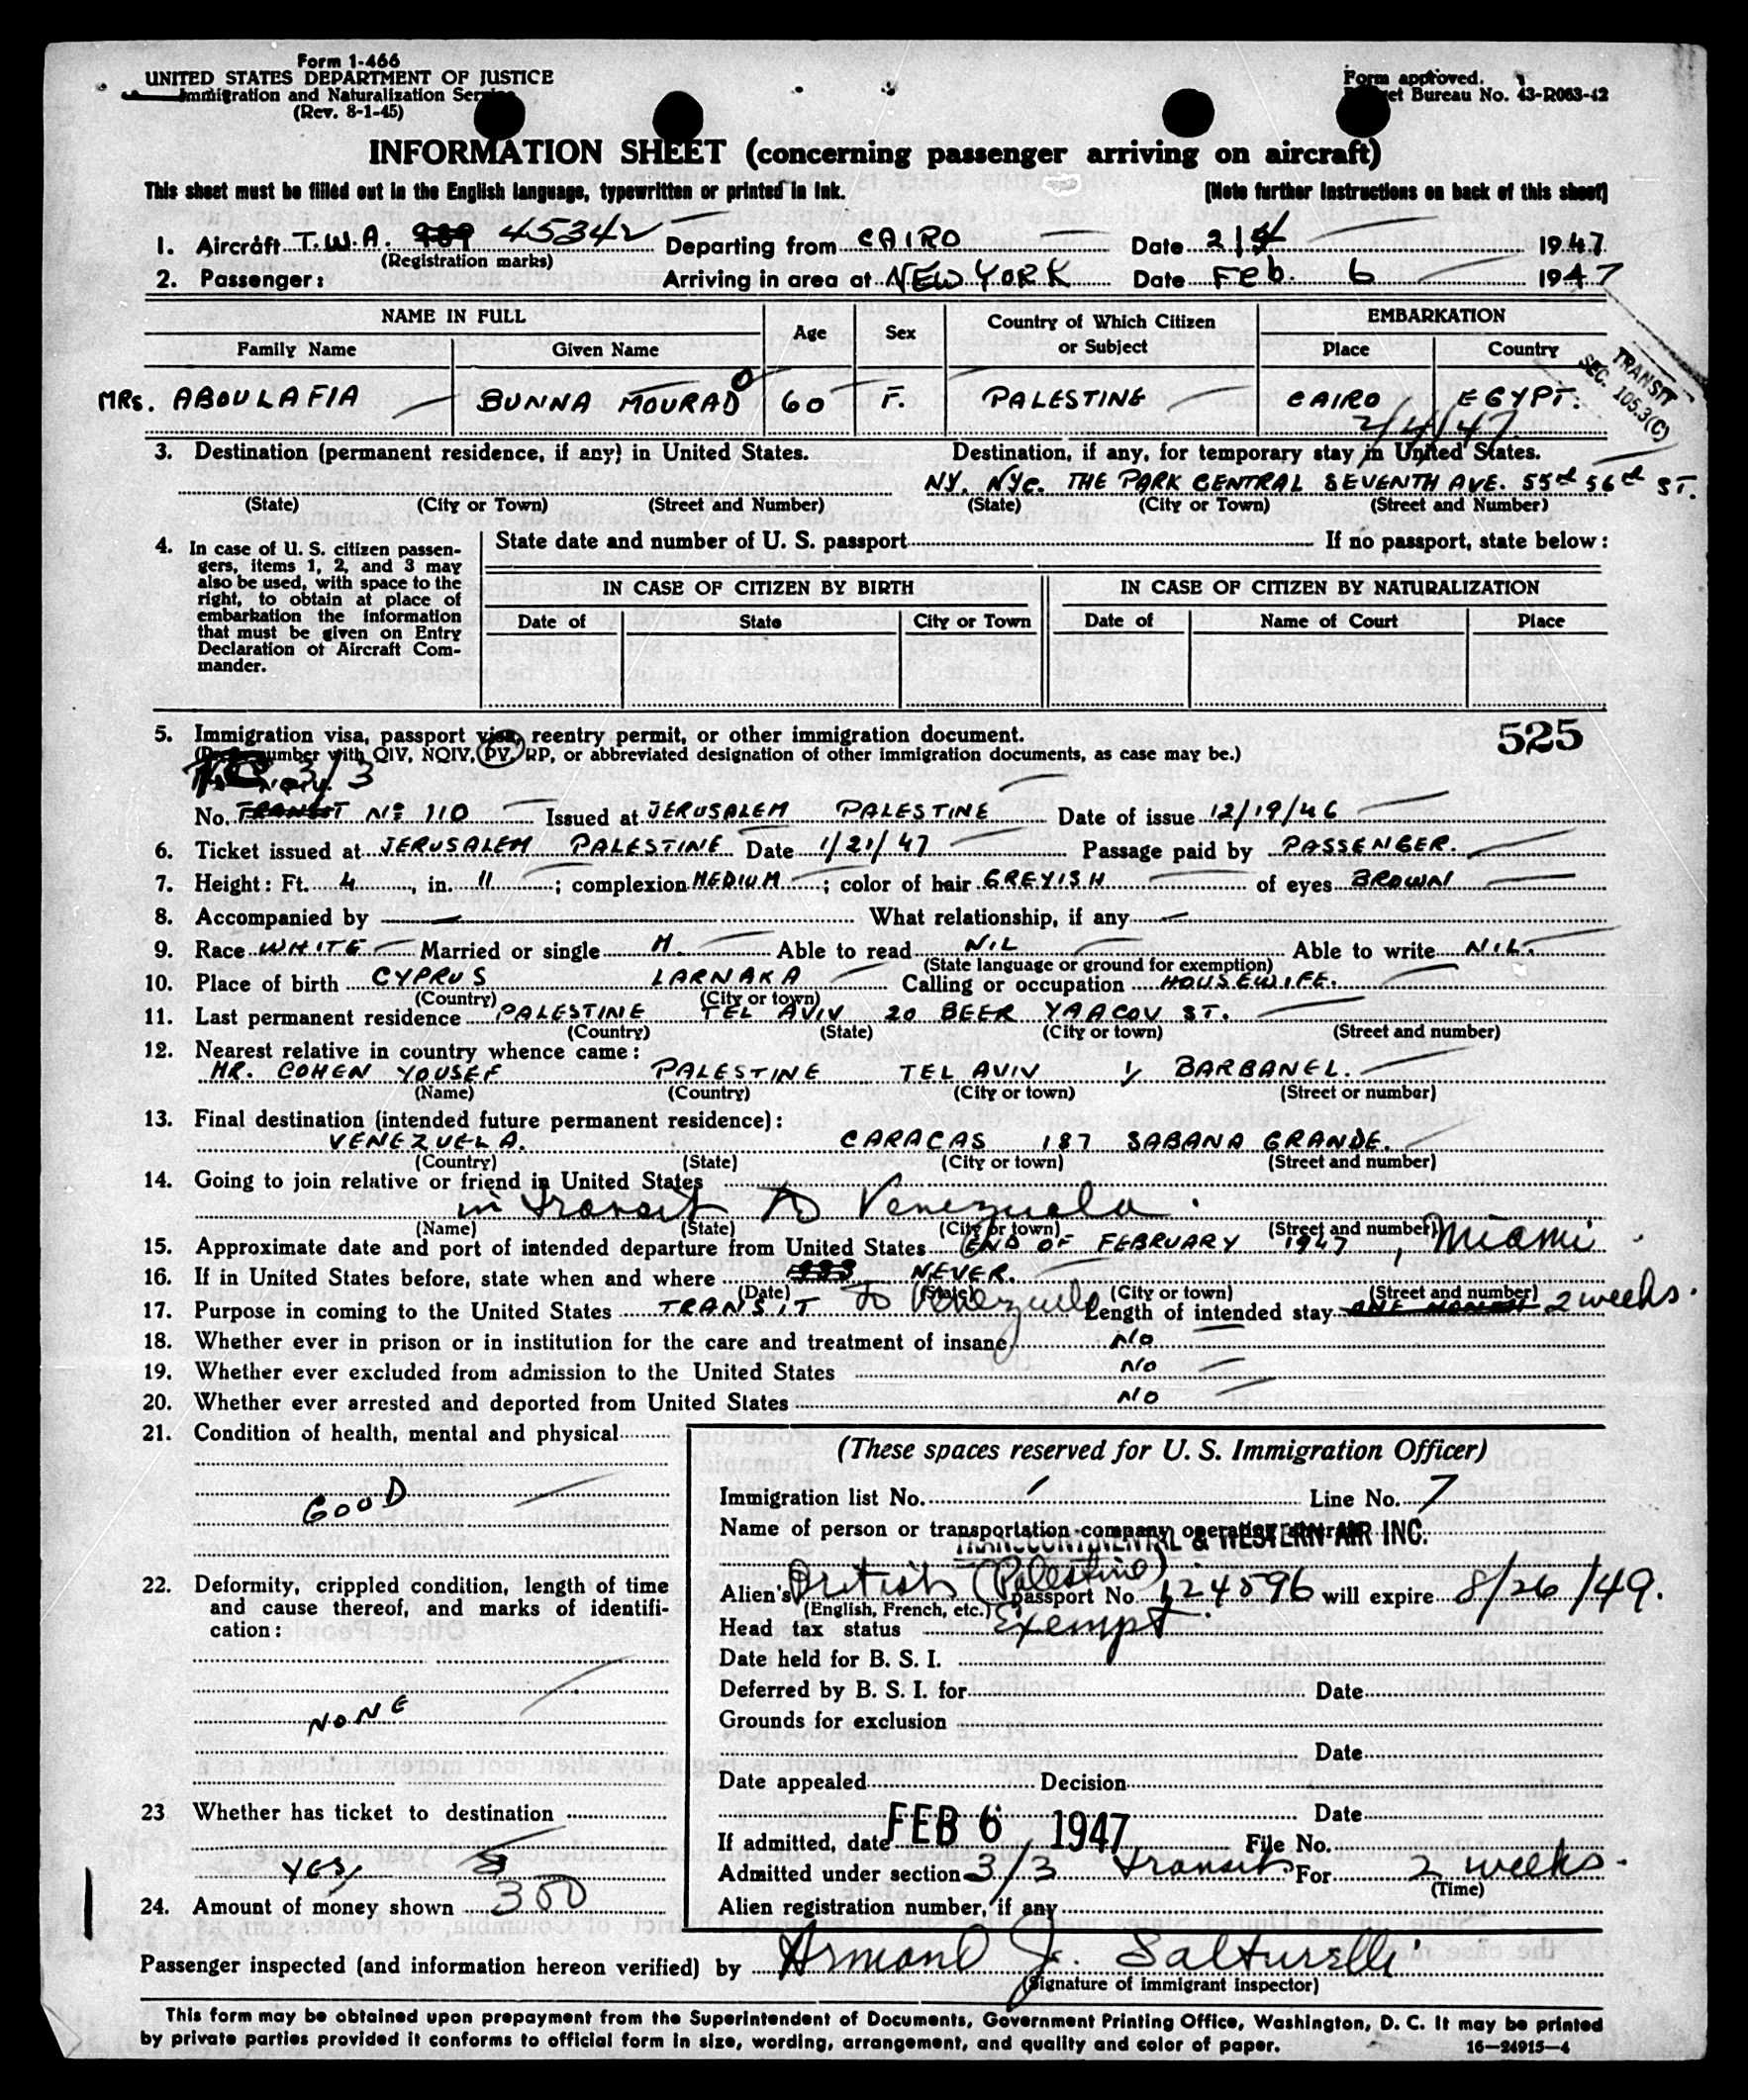 Form 1-466
UNITED STATES DEPARTMENT OF JUSTICE
Immigration and Naturalization Service
(Rev. 8-1-45)
Form approved.
Budget Bureau No. 43-R063-42
INFORMATION SHEET (concerning passenger arriving on aircraft)
This sheet must be filled out in the English language, typewritten or printed in ink. [Note further instructions on back of this sheet]
1. Aircraft T.W.A. 45342 Departing from CAIRO Date 2/4 1947
(Registration marks)
2. Passenger: Arriving in area at NEW YORK Date Feb. 6 1947
NAME IN FULL Age Sex Country of Which Citizen or Subject EMBARKATION
Family Name Given Name Place Country
TRANSIT
SEC. 105.3(C)
MRS. ABOULAFIA BUNNA MOURADO 60 F. PALESTINE CAIRO EGYPT.
2/4/47
3. Destination (permanent residence, if any) in United States. Destination, if any, for temporary stay in United States.
NY. NYC. THE PARK CENTRAL SEVENTH AVE. 55th 56th ST.
(State) (City or Town) (Street and Number) (State) (City or Town) (Street and Number)
4. In case of U. S. citizen passengers, items 1, 2, and 3 may also be used, with space to the right, to obtain at place of embarkation the information that must be given on Entry Declaration of Aircraft Commander.
State date and number of U. S. passport If no passport, state below:
IN CASE OF CITIZEN BY BIRTH IN CASE OF CITIZEN BY NATURALIZATION
Date of State City or Town Date of Name of Court Place
5. Immigration visa, passport visa, reentry permit, or other immigration document.
number with QIV, NQIV, PV, RP, or abbreviated designation of other immigration documents, as case may be.)
525
3/3
No. TRANSIT No 110 Issued at JERUSALEM PALESTINE Date of issue 12/19/46
6. Ticket issued at JERUSALEM PALESTINE Date 1/21/47 Passage paid by PASSENGER.
7. Height: Ft. 4, in. 11; complexion MEDIUM; color of hair GREYISH of eyes BROWN
8. Accompanied by — What relationship, if any —
9. Race WHITE Married or single M. Able to read NIL Able to write NIL.
(State language or ground for exemption)
10. Place of birth CYPRUS LARNAKA Calling or occupation HOUSEWIFE.
(Country) (City or town)
11. Last permanent residence PALESTINE TEL AVIV 20 BEER YAACOV ST.
(Country) (State) (City or town) (Street and number)
12. Nearest relative in country whence came:
MR. COHEN YOUSEF PALESTINE TEL AVIV 1/ BARBANEL.
(Name) (Country) (City or town) (Street or number)
13. Final destination (intended future permanent residence):
VENEZUELA. CARACAS 187 SABANA GRANDE.
(Country) (State) (City or town) (Street and number)
14. Going to join relative or friend in United States
in transit to Venezuela.
(Name) (State) (City or town) (Street and number)
15. Approximate date and port of intended departure from United States END OF FEBRUARY 1947, Miami.
16. If in United States before, state when and where NEVER.
(Date) (State) (City or town) (Street and number)
17. Purpose in coming to the United States TRANSIT to Venezuela Length of intended stay ONE MONTH 2 weeks.
18. Whether ever in prison or in institution for the care and treatment of insane No
19. Whether ever excluded from admission to the United States No
20. Whether ever arrested and deported from United States NO
21. Condition of health, mental and physical
GOOD
22. Deformity, crippled condition, length of time and cause thereof, and marks of identification:
NONE
23 Whether has ticket to destination
YES,
24. Amount of money shown 300
(These spaces reserved for U. S. Immigration Officer)
Immigration list No. 1 Line No. 7
Name of person or transportation company operating aircraft
TRANSCONTINENTAL & WESTERN AIR INC.
Alien's British (Palestine) passport No. 124596 will expire 8/26/49.
(English, French, etc.)
Head tax status Exempt.
Date held for B. S. I.
Deferred by B. S. I. for Date
Grounds for exclusion
Date
Date appealed Decision
Date
If admitted, date FEB 6 1947 File No.
Admitted under section 3/3 transit For 2 weeks.
(Time)
Alien registration number, if any
Passenger inspected (and information hereon verified) by Armand J. Salturelli
(Signature of immigrant inspector)
This form may be obtained upon prepayment from the Superintendent of Documents, Government Printing Office, Washington, D. C. It may be printed
by private parties provided it conforms to official form in size, wording, arrangement, and quality and color of paper. 16—24915-4